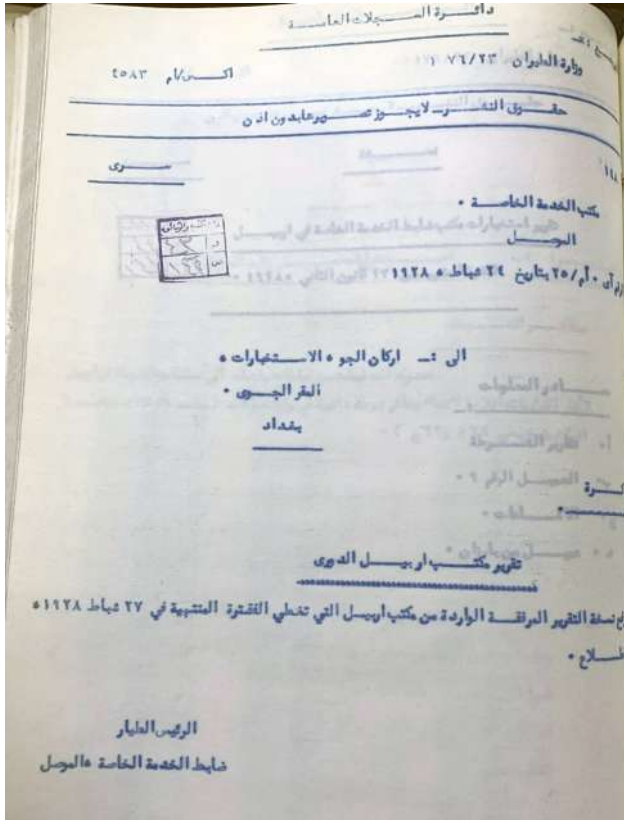 دائرة السجلات العامة
وزارة الطيران ٢٣/٧٦ ١
اكس/ام ٤٥٨٣
حقوق النشر لايجوز تصويرها بدون اذن
سرى
مكتب الخدمة الخاصة •
الموصل
آى • أم/٢٥ بتاريخ ٢٤ شباط ١٩٢٨
الى :ـ اركان الجو ٥ الاستخبارات ٥
المقر الجوى •
بغداد
تقرير مكتب اربيل الدورى
نسخة التقرير المرفقة الواردة من مكتب اربيل التي تغطي الفترة المنتهية في ٢٧ شباط ١٩٢٨ ٥
الرئيس الطيار
ضابط الخدمة الخاصة ٥الموصل